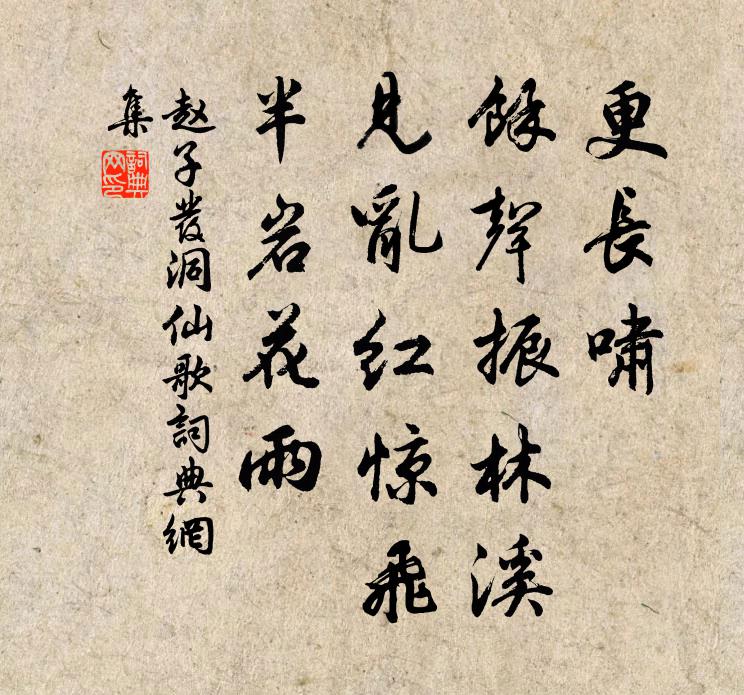 更長嘯
餘聲振林溪
見亂紅惊飛
半岩花雨
赵子發洞仙歌詞典網
集
詞典
网印